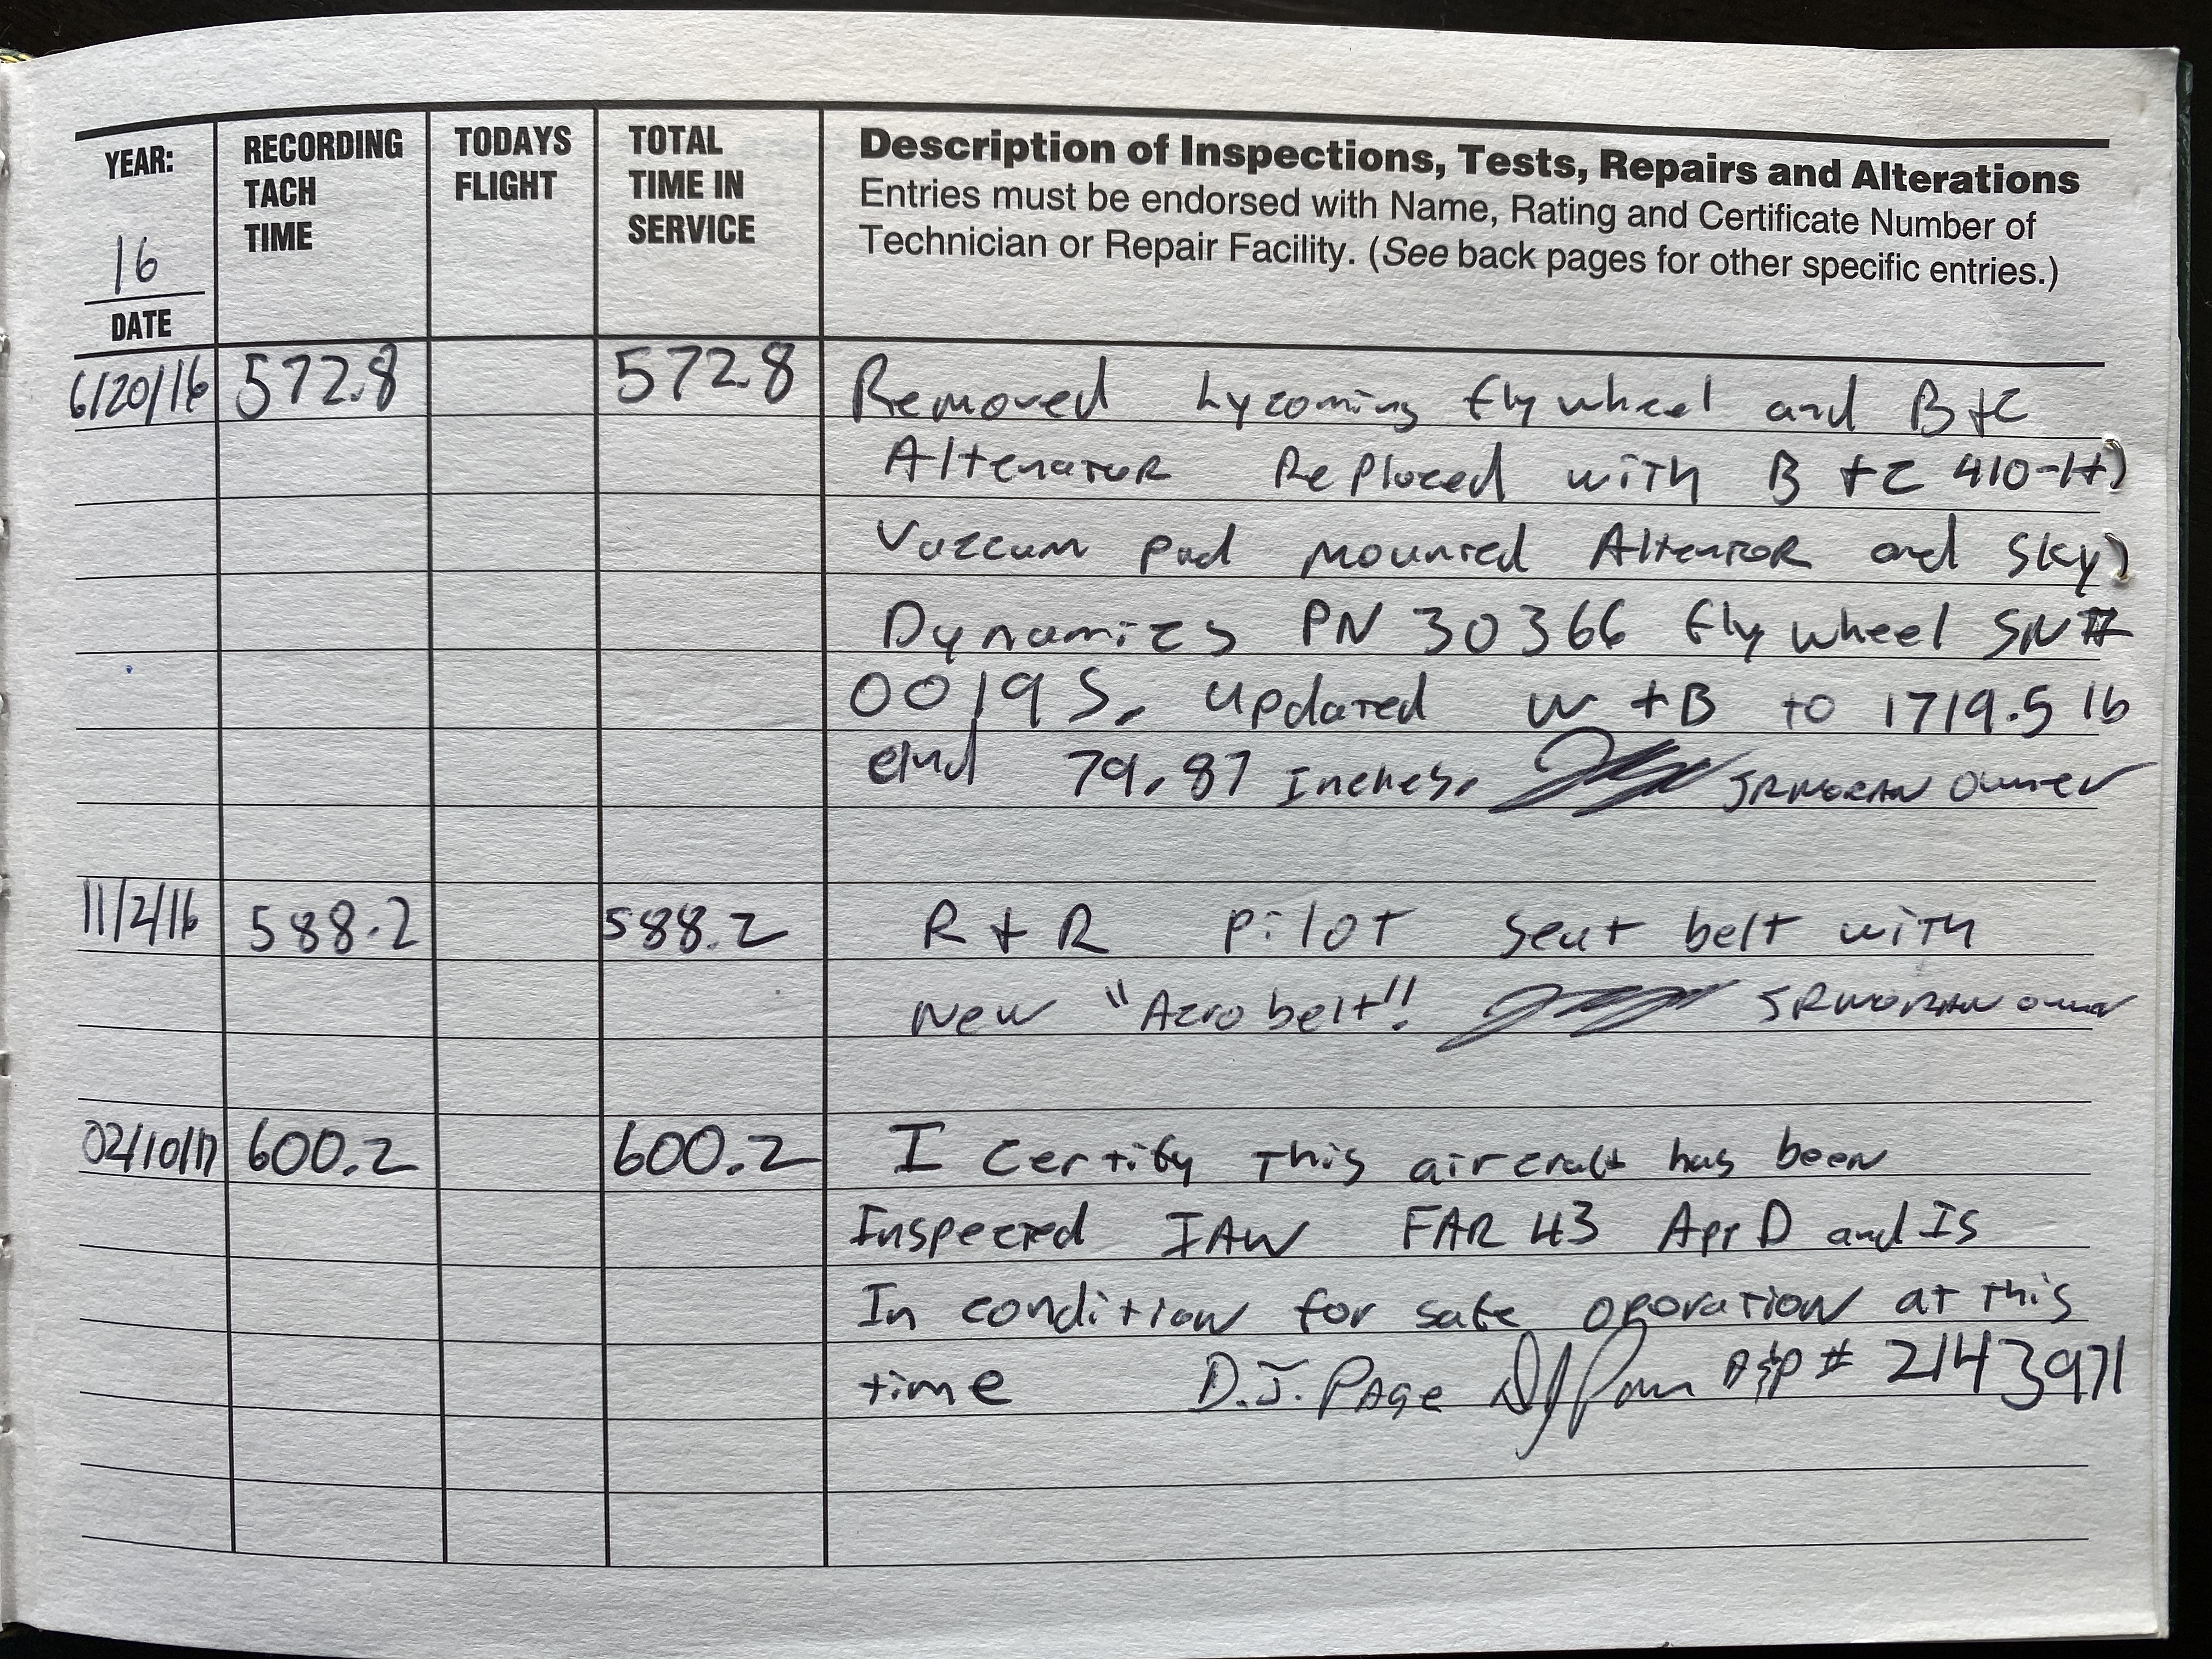 YEAR:
16
DATE
RECORDING
TACH
TIME
TODAYS
FLIGHT
TOTAL
TIME IN
SERVICE
Description of Inspections, Tests, Repairs and Alterations
Entries must be endorsed with Name, Rating and Certificate Number of
Technician or Repair Facility. (See back pages for other specific entries.)
6/20/16 572.8 572.8 Removed Lycoming flywheel and B+C
Altenator Replaced with B+C 410-H
Vaccum pad mounted Altenator and Sky
Dynamics PN 30366 flywheel SN#
0019S. updated W+B to 1719.5 lb
and 79.87 Inches. JRMORAN owner
11/2/16 588.2 588.2 R+R pilot seat belt with
New "Aero belt". JRMORAN owner
02/10/17 600.2 600.2 I certify this aircraft has been
Inspected IAW FAR 43 App D and Is
In condition for safe operation at this
time D.J. PAge A&P # 2143971